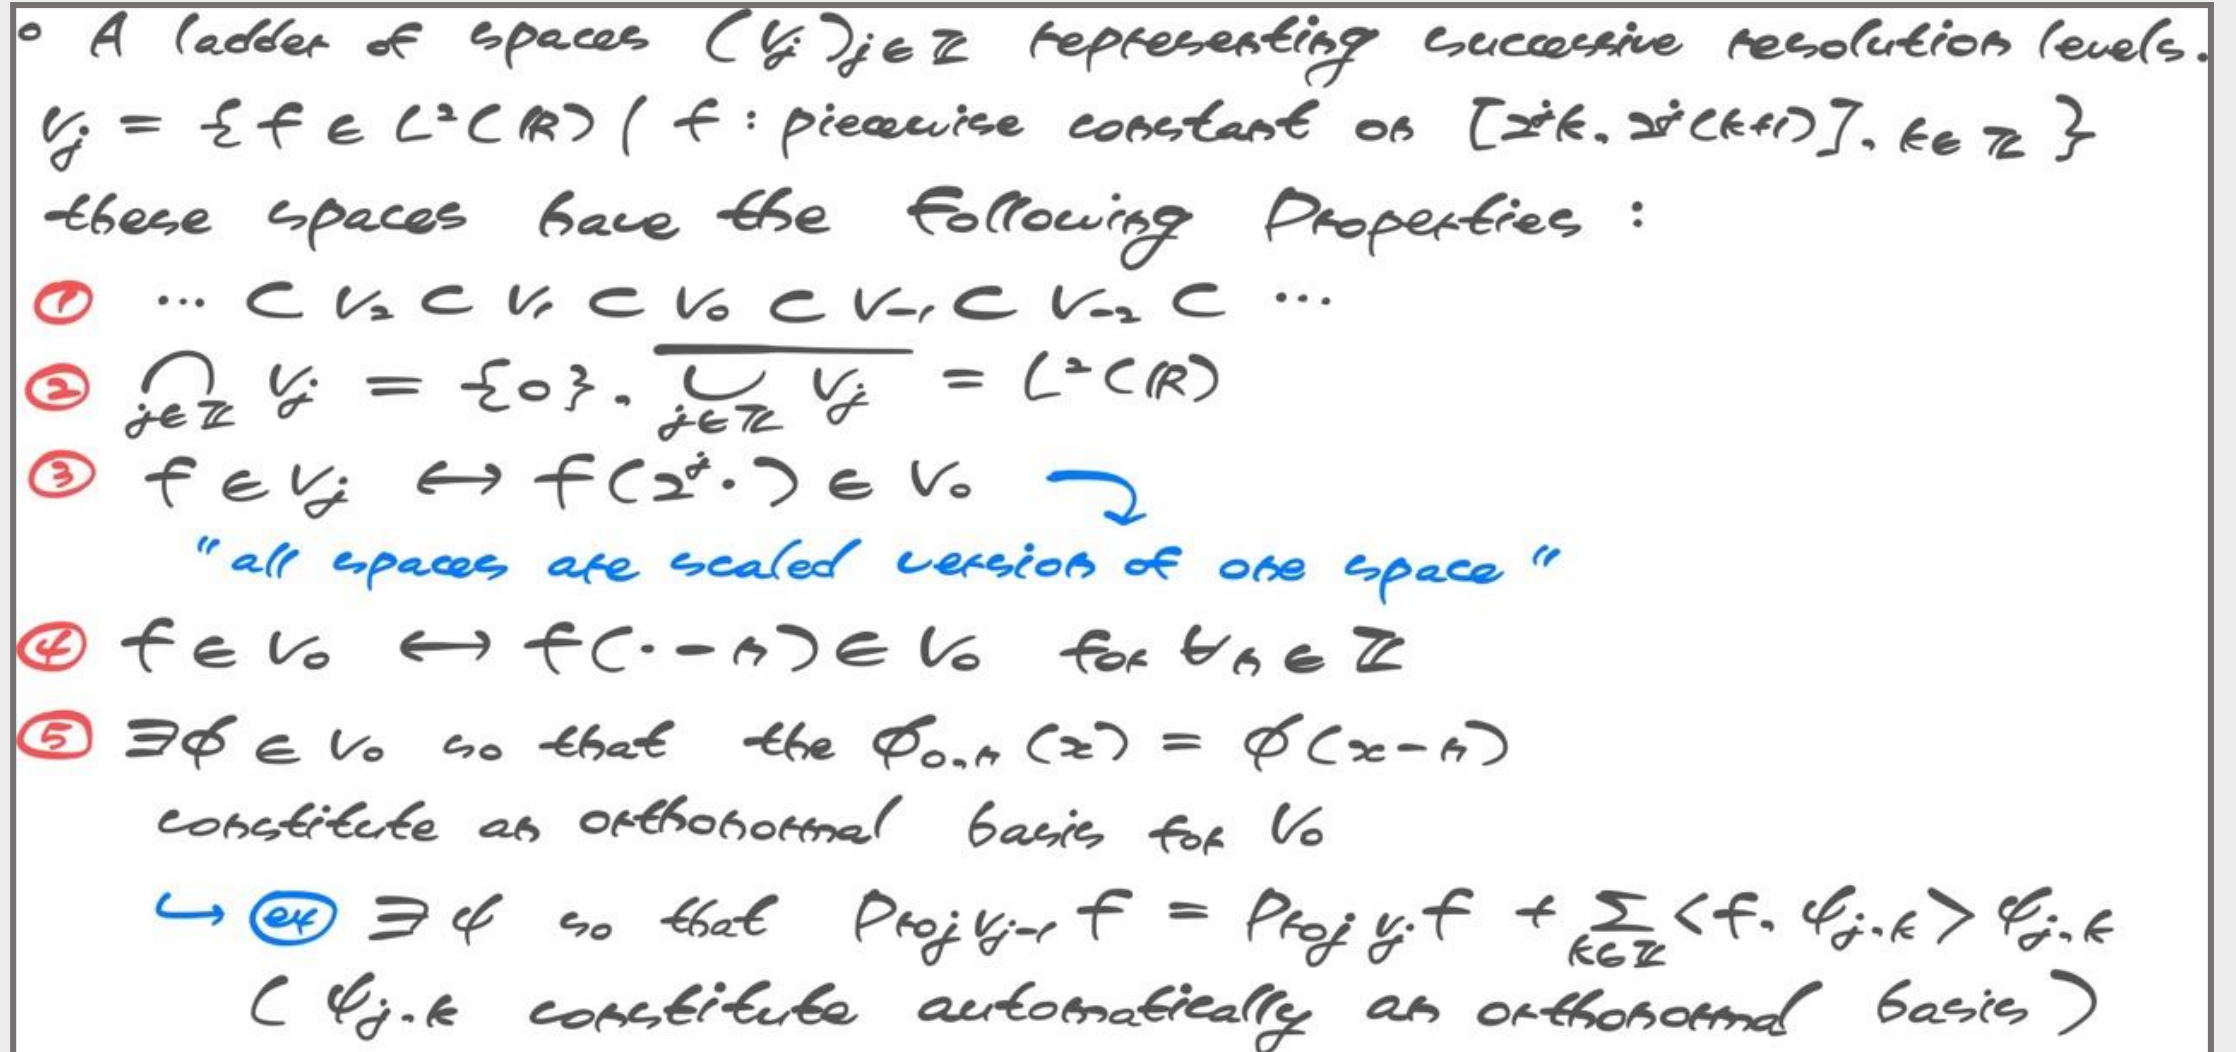 ° A ladder of spaces (Vj)j∈ℤ representing successive resolution levels.
Vj = {f ∈ L²(ℝ) | f : piecewise constant on [2ʲk, 2ʲ(k+1)], k∈ℤ }
these spaces have the following Properties :
① ... ⊂ V₂ ⊂ V₁ ⊂ V₀ ⊂ V₋₁ ⊂ V₋₂ ⊂ ...
② ⋂j∈ℤ Vj = {0}, \overline{⋃j∈ℤ Vj} = L²(ℝ)
③ f ∈ Vj ↔ f(2ʲ·) ∈ V₀
"all spaces are scaled version of one space"
④ f ∈ V₀ ↔ f(·-n) ∈ V₀ for ∀n ∈ ℤ
⑤ ∃ϕ ∈ V₀ so that the ϕ₀,n (x) = ϕ(x-n)
constitute an orthonormal basis for V₀
↪ ex ∃ψ so that Proj Vj-1 f = Proj Vj f + ∑k∈ℤ <f, ψj,k> ψj,k
( ψj,k constitute automatically an orthonormal basis )